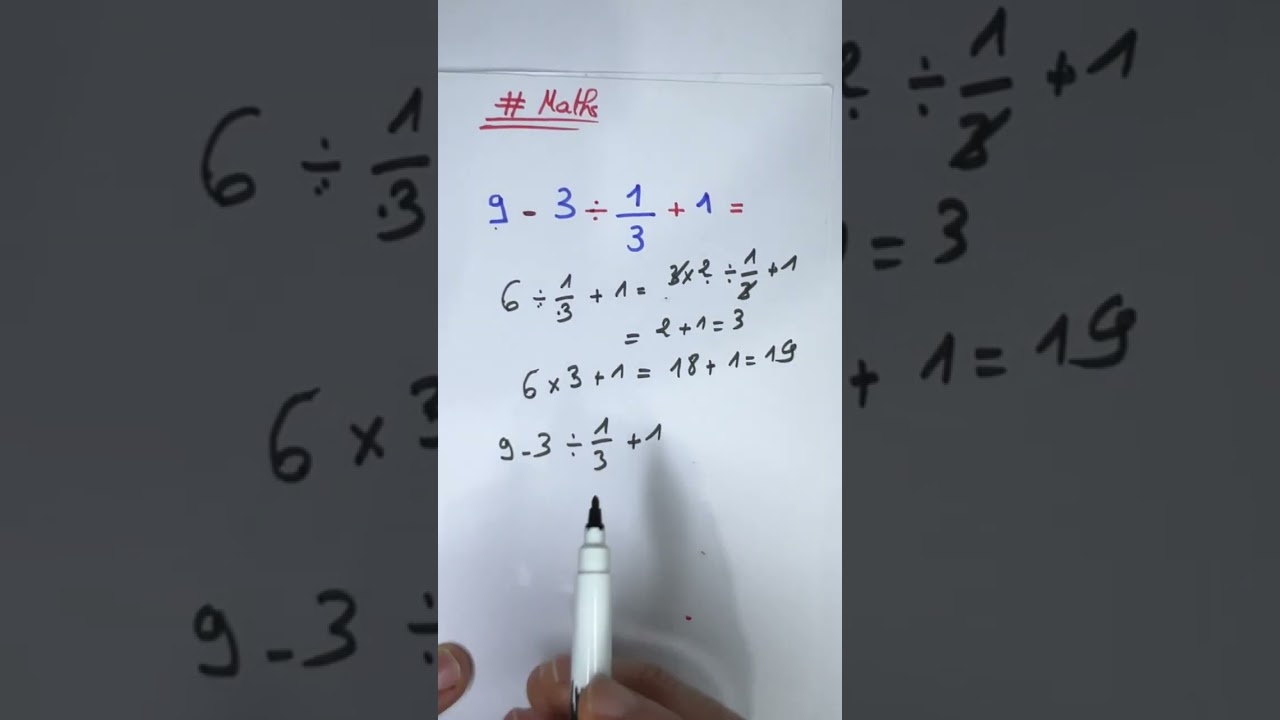 # Maths
9 - 3 ÷ 1/3 + 1 =
6 ÷ 1/3 + 1 = 3 x 2 ÷ 1/3 + 1
= 2 + 1 = 3
6 x 3 + 1 = 18 + 1 = 19
9 - 3 ÷ 1/3 + 1